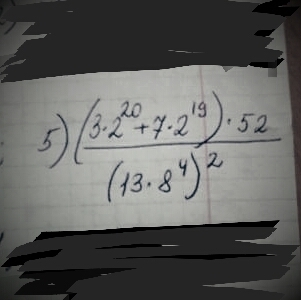 5) (3·2²⁰+7·2¹⁹)·52
(13·8⁴)²